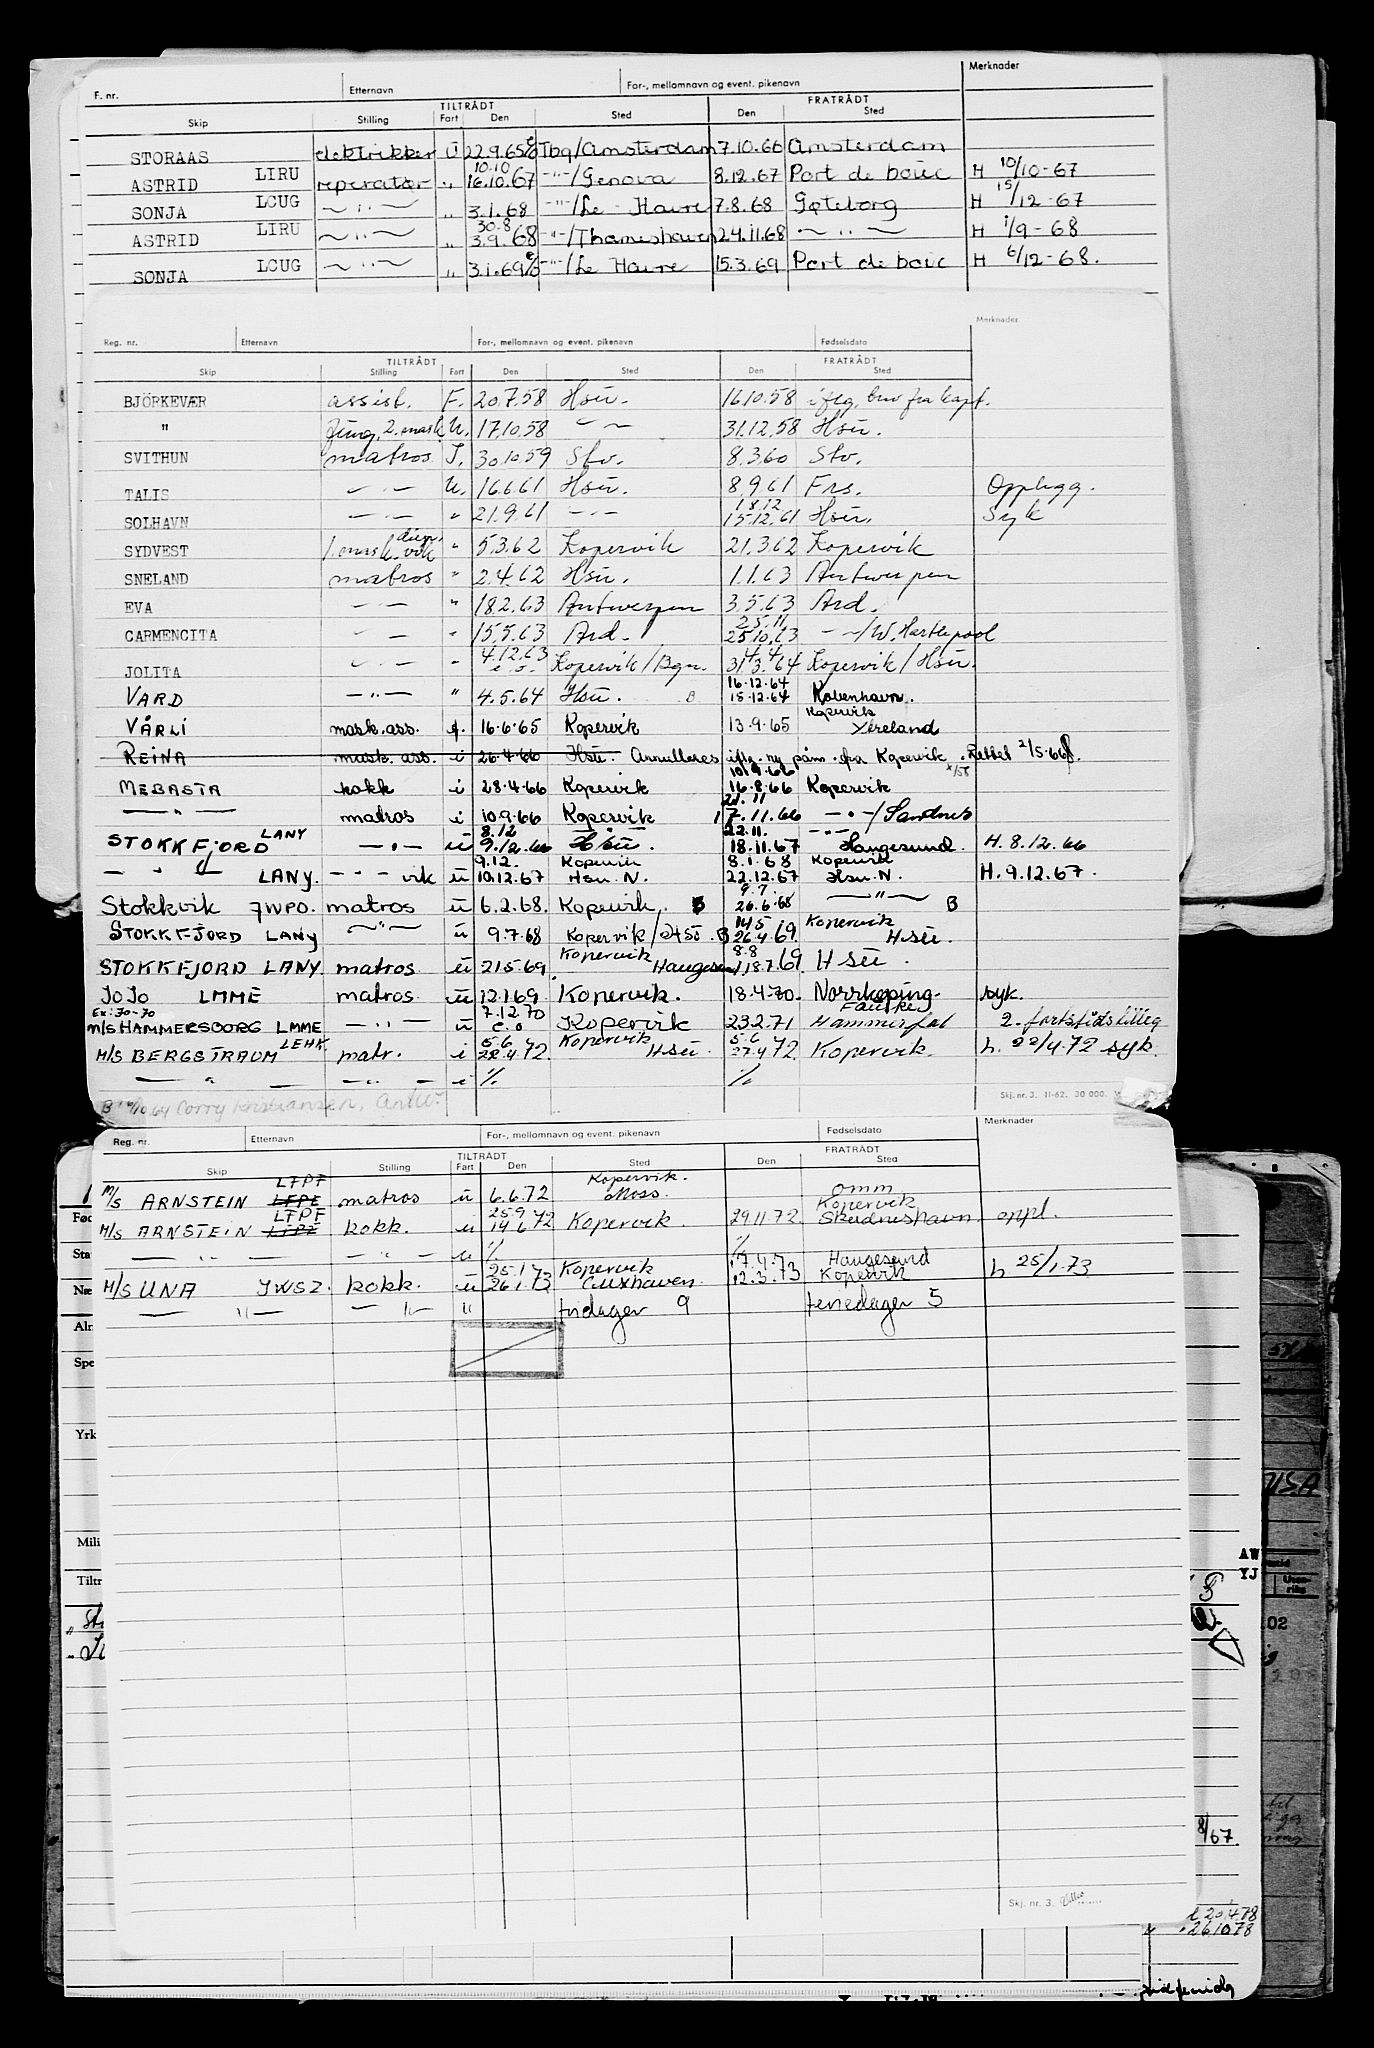 F. nr. Etternavn For-, mellomnavn og event. pikenavn Merknader
TILTRÅDT FRATRÅDT
Skip Stilling Fart Den Sted Den Sted
STORAAS elektrikker ū 22.9.65 Tbg/Amsterdam 7.10.66 Amsterdam
10.10
ASTRID LIRU reperatør " 16.10.67 -"-/Genova 8.12.67 Port de bouc H 10/10-67
SONJA LCUG -"- " 3.1.68 -"-/Le Havre 7.8.68 Gøteborg H 15/12-67
30.8
ASTRID LIRU -"- " 3.9.68 -"-/Thameshaven 24.11.68 -"- H 1/9-68
SONJA LCUG -"- " 3.1.69 -"-/Le Havre 15.3.69 Port de bouc H 6/12-68.
Merknader
Reg. nr. Etternavn For-, mellomnavn og event. pikenavn Fødselsdato
TILTRÅDT FRATRÅDT
Skip Stilling Fart Den Sted Den Sted
BJÖRKEVÆR assist. F. 20.7.58 Hsu. 16.10.58 iflg. brev fra kapt.
" Jung. 2. mask U. 17.10.58 -"- 31.12.58 Hsu.
SVITHUN matros I. 30.10.59 Stv. 8.3.60 Stv.
TALIS -"- U. 16.6.61 Hsu. 8.9.61 Frs. Opplegg.
18.12
SOLHAVN -"- " 21.9.61 -"- 15.12.61 Hsu. Syk
SYDVEST 1. mask. vik " 5.3.62 Kopervik 21.3.62 Kopervik
SNELAND matros " 2.4.62 Hsu. 1.1.63 Antwerpen
EVA -"- " 18.2.63 Antwerpen 3.5.63 Ard.
25.11
CARMENCITA -"- " 15.5.63 Ard. 25.10.63 -"-/W. Hartlepool
4.12.63 4.4
JOLITA -"- " Kopervik/Bgn. 31.3.64 Kopervik/Hsu.
16.12.64
VARD -"- " 4.5.64 Hsu. B 15.12.64 København.
Kopervik
VÅRLI mask.ass. f. 16.6.65 Kopervik 13.9.65
REINA mask. ass. i 26.4.66 Hsu. Annulleres iflg. ny påm. fra Kopervik. Rettet 2/5.66
10.9.66
MEBASTA kokk i 28.4.66 Kopervik 16.8.66 Kopervik
21.11
-"- matros i 10.9.66 Kopervik 17.11.66 -"-/Sandnes
8.12 22.11. -"-
STOKKFJORD LANY -"- ū 9.12.66 Hsu. 18.11.67 Haugesund. H. 8.12.66
9.12. Kopervik 8.1.68 Kopervik
-"- LANY. -"- vik ū 10.12.67 Hsu. N. 22.12.67 Hsu. N. H. 9.12.67.
9.7
Stokkvik JWPO. matros ū 6.2.68. Kopervik. B 26.6.68 -"- B
14.5 Kopervik
STOKKFJORD LANY -"- ū 9.7.68 Kopervik/ B 26.4.69. Hsu.
Kopervik 8.8
STOKKFJORD LANY. matros ū 21.5.69. Haugesund 18.7.69 Hsu.
JOJO LMME matros ū 12.1.69 Kopervik. 18.4.70. Norrköping. syk.
Ex: JO-JO 7.12.70 Fauske
M/S HAMMERSBORG LMME -"- ū e.o Kopervik 23.2.71 Hammerfal 2. fartstidstillegg
5.6 Kopervik 5.6
M/S BERGSTRAUM LEHK matr. i 28.4.72 Hsu. 27.4.72 Kopervik. h. 22/4.72 syk.
-"- -"- i % %
B 10/10 64 Corry Kristiansen, Antw. Skj. nr. 3. 11-62. 30 000.
Reg. nr. Etternavn For-, mellomnavn og event. pikenavn Fødselsdato Merknader
TILTRÅDT FRATRÅDT
Skip Stilling Fart Den Sted Den Sted
LTPF Kopervik.
M/S ARNSTEIN LFPE matros ū 6.6.72 Moss. omm
LTPF 25.9 Kopervik
M/S ARNSTEIN kokk. ū 14.6.72 Kopervik. 29.11.72. Skudneshavn oppl.
-"- -"- ū % %
25.1 Kopervik 17.4.73 Haugesund
M/S UNA JWSZ. kokk. ū 26.1.73 Cuxhaven. 12.3.73 Kopervik h 25/1.73
-"- -"- " fridager 9 feriedager 5
Fød
Sta
Næ
Aln
Spe
Yrk
Mili
Tiltr
USA
AW
YJ
Uten-
riks
02
8/67
Skj. nr. 3.
20.4.78
26.10.78